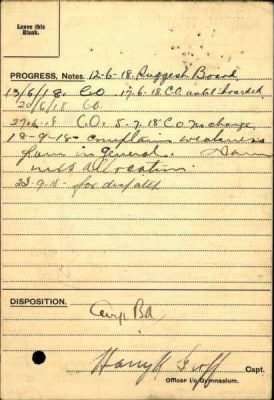 Leave this
Blank.
PROGRESS, Notes. 12-6-18. Suggest Board
13/6/18. CO 17.6.18. CO until boarded
20/6/18 CO.
27.6.18 C.O. 5.7.18 CO no change
18-9-18- complains weakness
in general.
23-9-18- for
DISPOSITION.
Harry Capt.
Officer i/c Gymnasium.